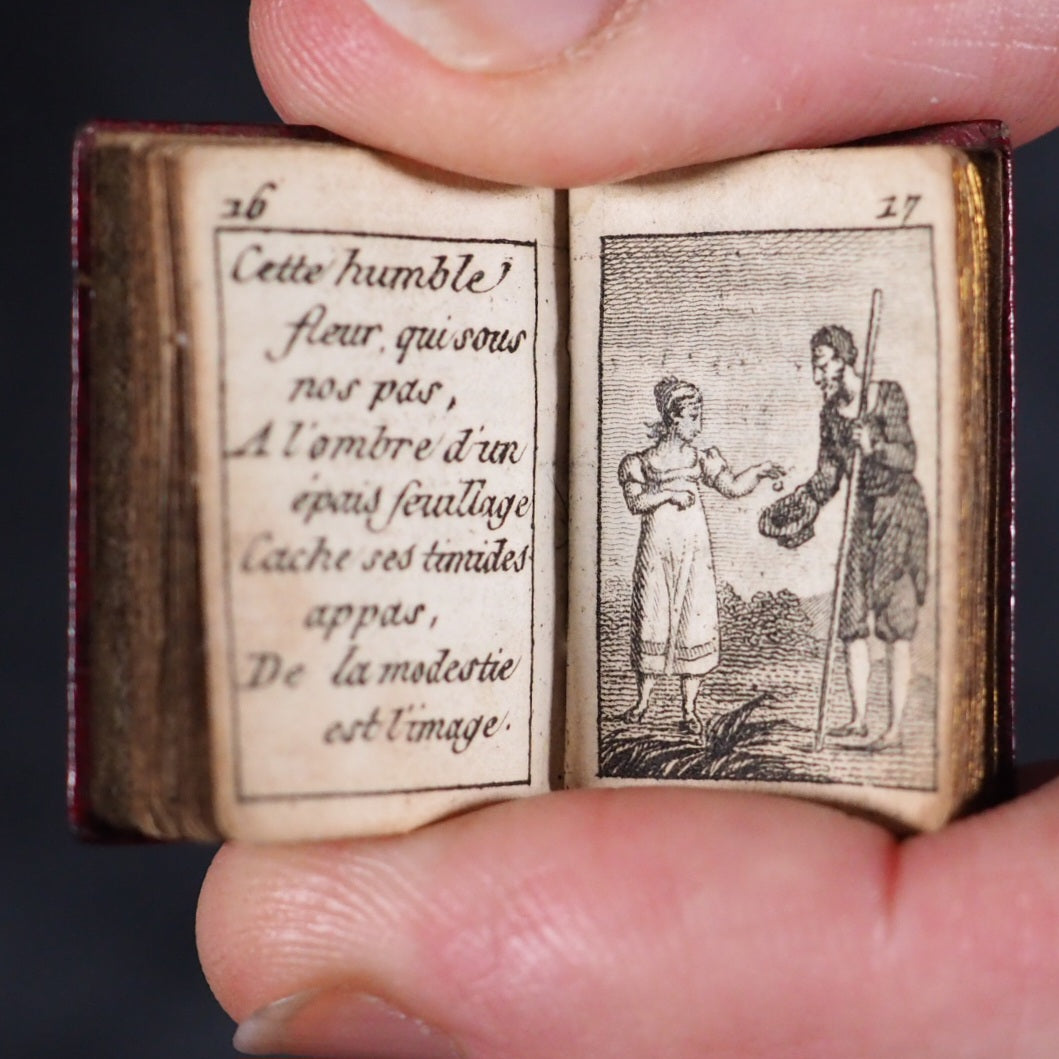 16
Cette humble
fleur, qui sous
nos pas,
A l'ombre d'un
épais feuillage
Cache ses timides
appas,
De la modestie
est l'image.
17